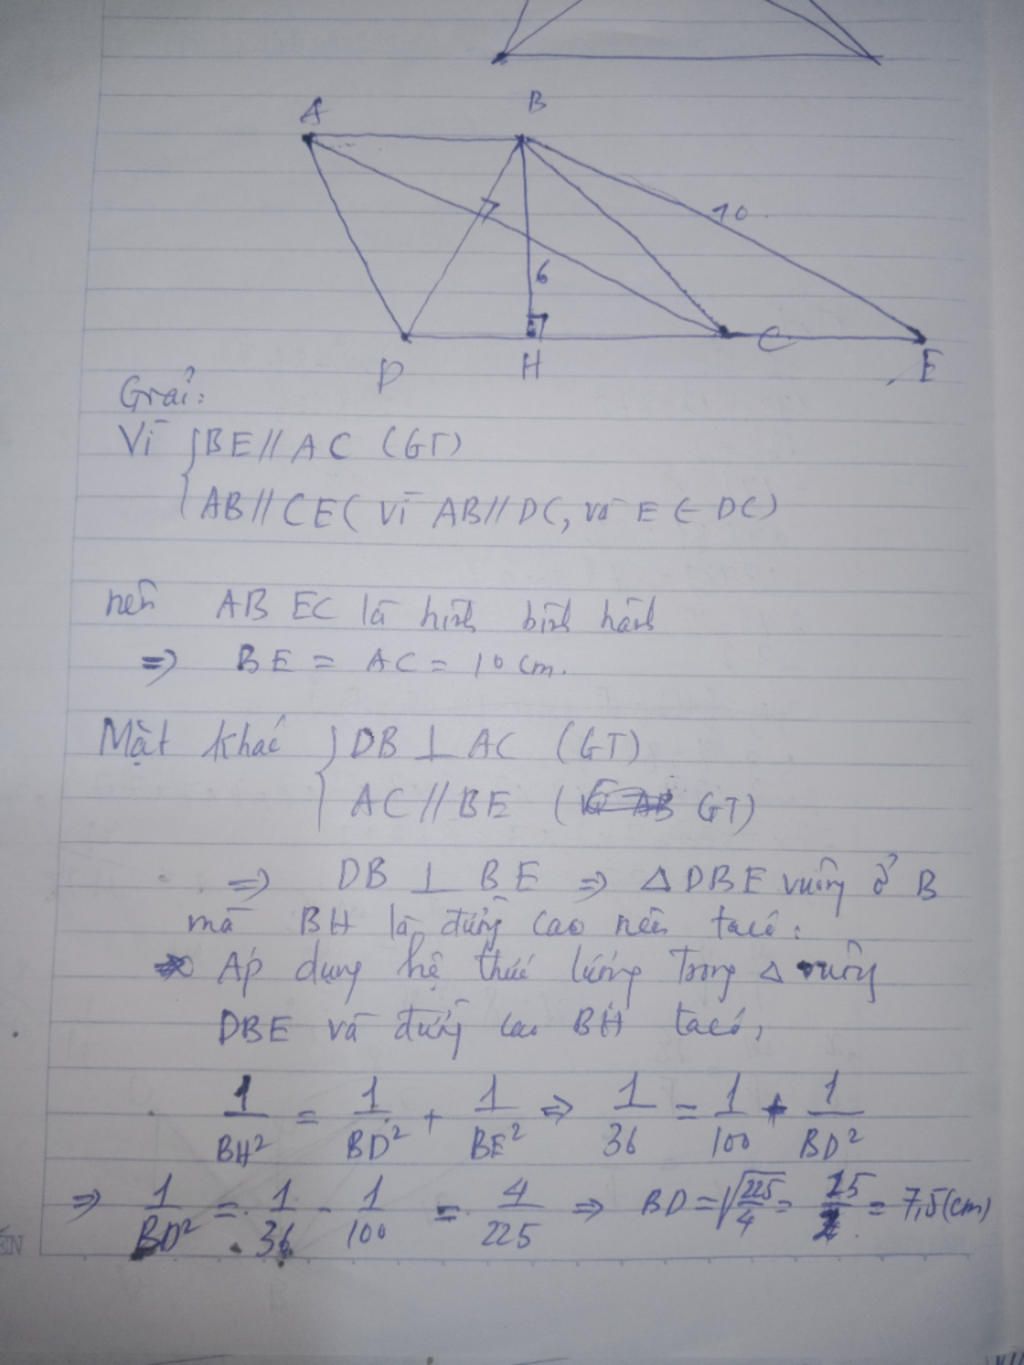 A B
10
6
D H C E
Giải:
Vì { BE // AC (GT)
AB // CE ( vì AB // DC, và E ∈ DC)
nên ABEC là hình bình hành
=> BE = AC = 10 cm.
Mặt khác { DB ⊥ AC (GT)
AC // BE ( GT)
=> DB ⊥ BE => Δ DBE vuông ở B
mà BH là đường cao nên ta có:
Áp dụng hệ thức lượng trong Δ vuông
DBE và đường cao BH ta có,
1/BH² = 1/BD² + 1/BE² => 1/36 = 1/100 + 1/BD²
=> 1/BD² = 1/36 - 1/100 = 4/225 => BD = √225/4 = 15/2 = 7,5 (cm)